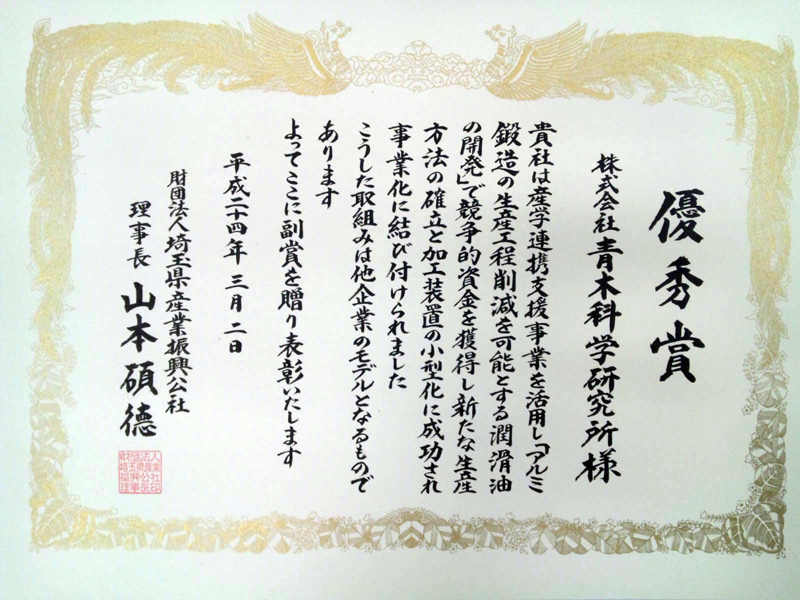 優秀賞
株式会社 青木科学研究所様
貴社は産学連携支援事業を活用し「アルミ
鍛造の生産工程削減を可能とする潤滑油
の開発」で競争的資金を獲得し新たな生産
方法の確立と加工装置の小型化に成功され
事業化に結び付けられました
こうした取組みは他企業のモデルとなるもので
あります
よってここに副賞を贈り表彰いたします
平成二十四年 三月 二日
財団法人埼玉県産業振興公社
理事長 山本碩徳